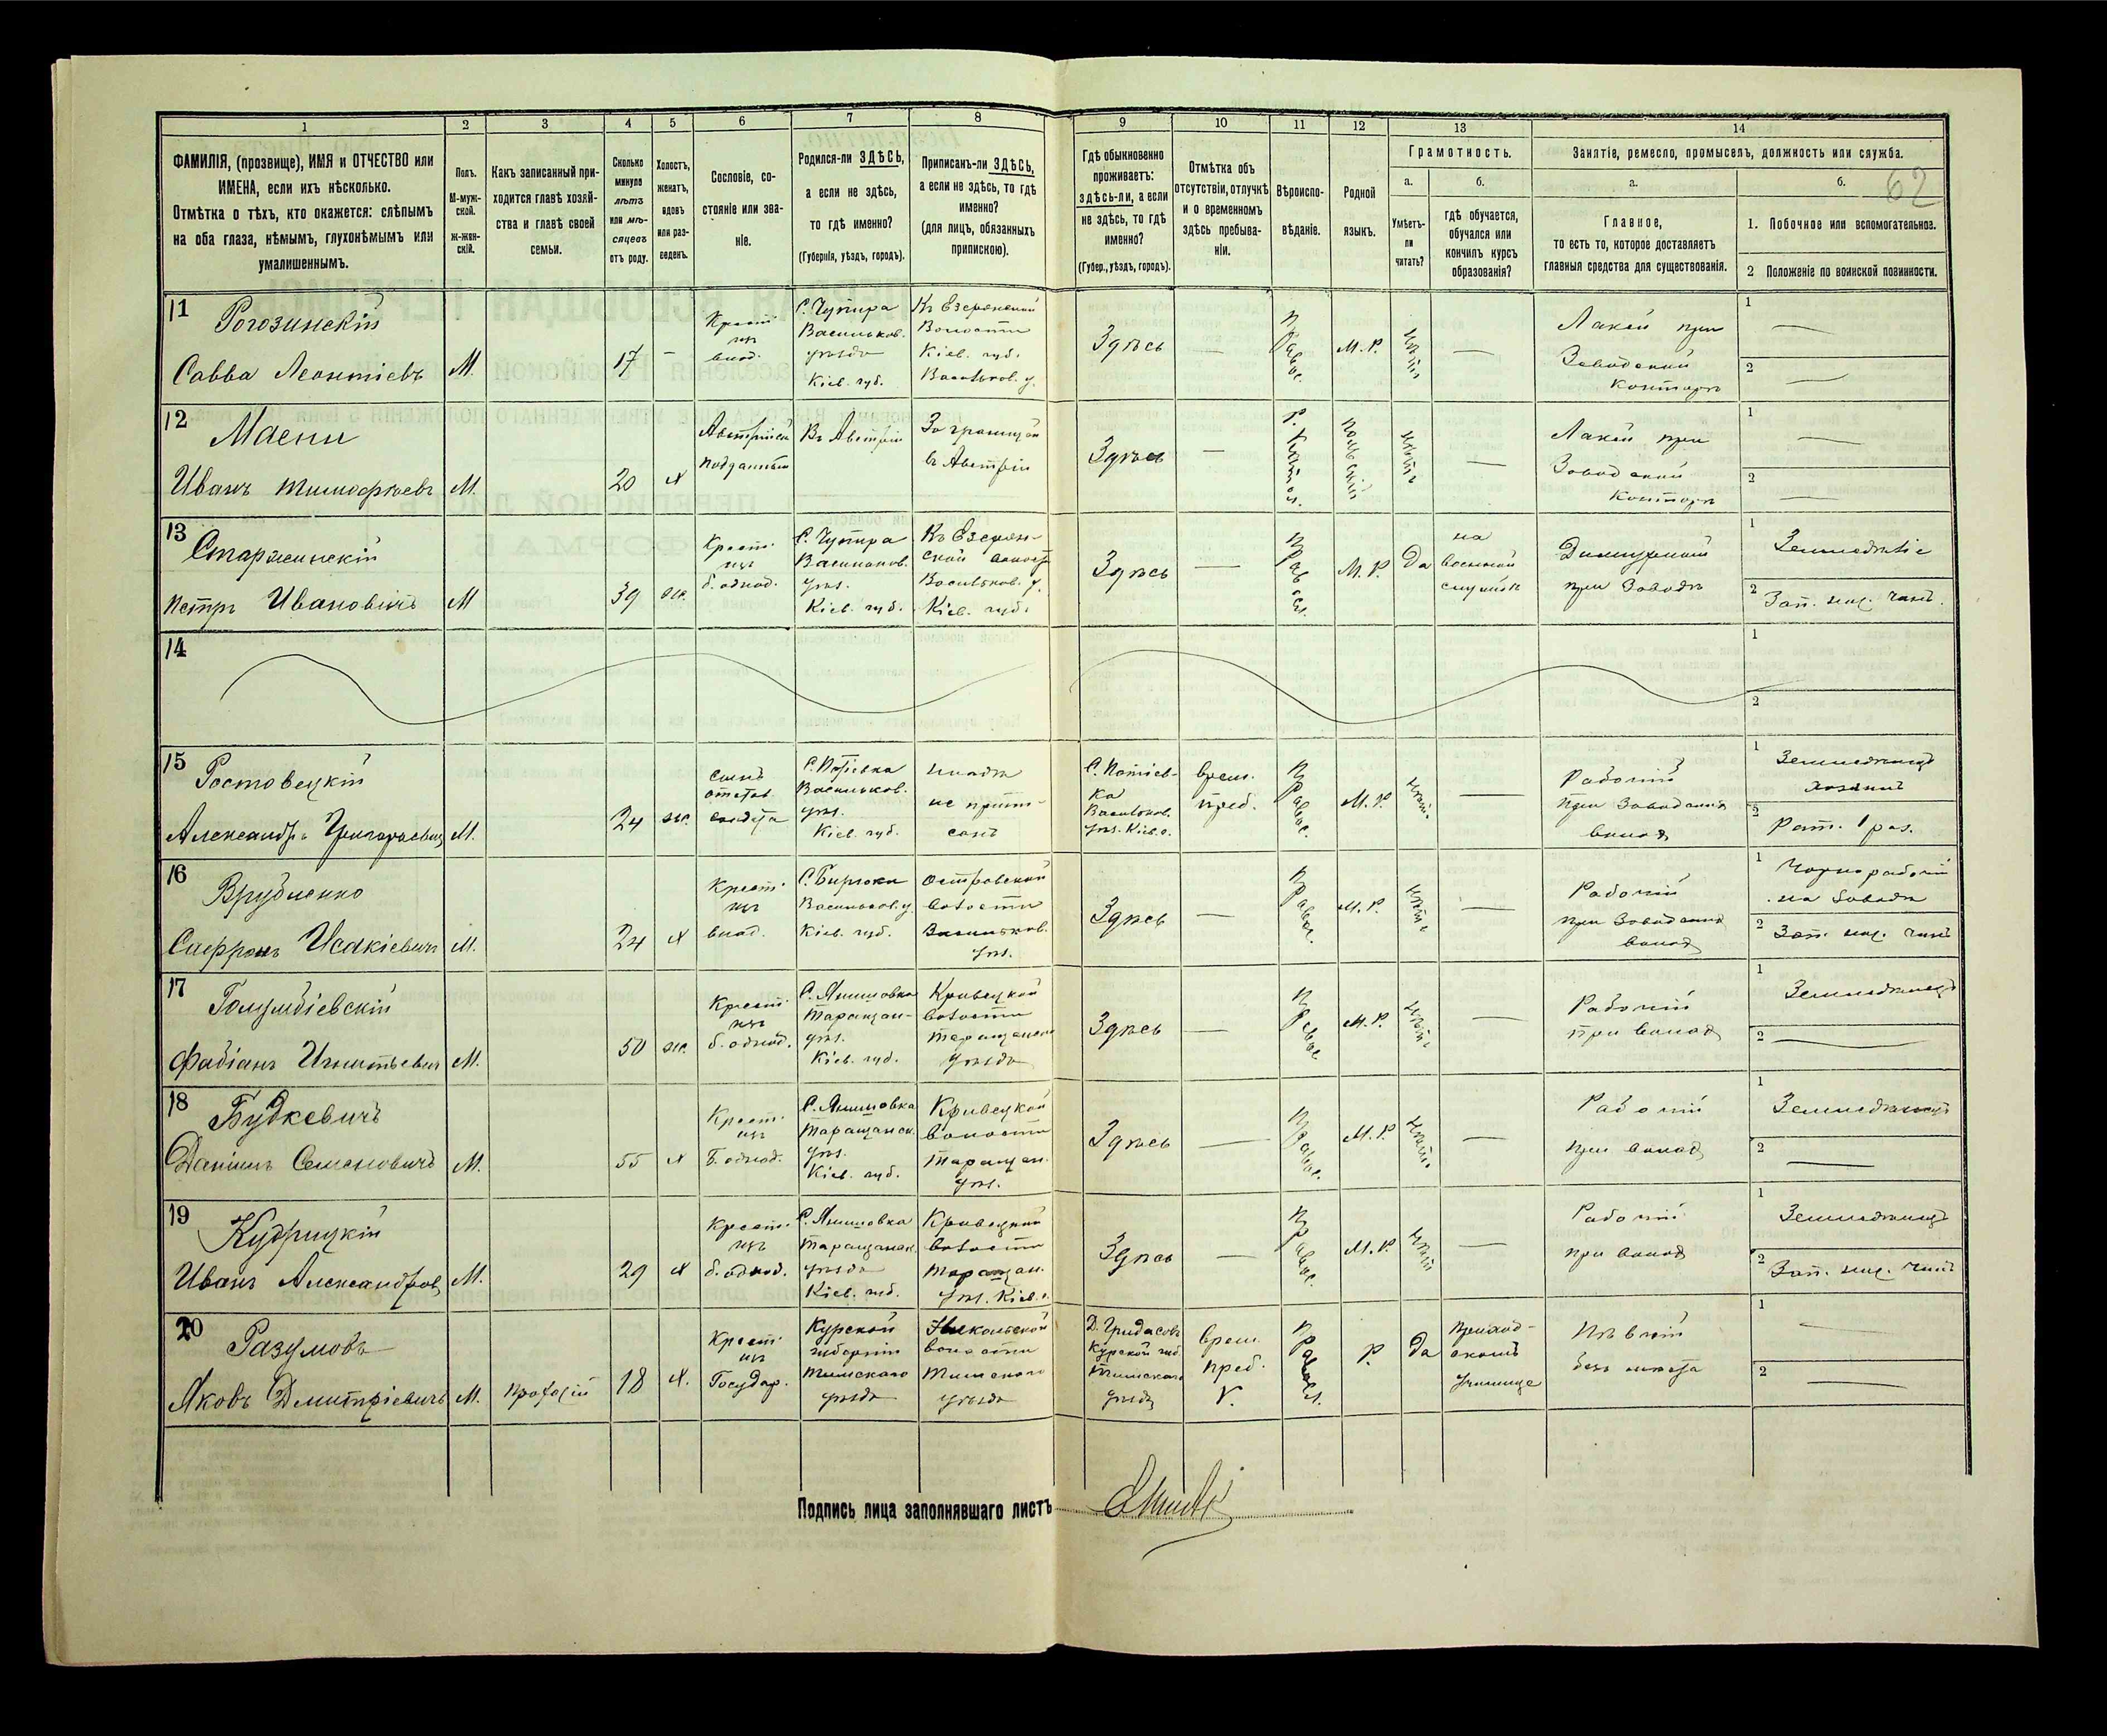 1 2 3 4 5 6 7 8 9 10 11 12 13 14
ФАМИЛІЯ, (прозвище), ИМЯ и ОТЧЕСТВО или
ИМЕНА, если ихъ нѣсколько.
Отмѣтка о тѣхъ, кто окажется: слѣпымъ
на оба глаза, нѣмымъ, глухонѣмымъ или
умалишеннымъ.
Полъ.
М-муж-
ской.
ж-жен-
скій.
Какъ записанный при-
ходится главѣ хозяй-
ства и главѣ своей
семьи.
Сколько
минуло
лѣтъ
или мѣ-
сяцевъ
отъ роду.
Холостъ,
женатъ,
вдовъ
или раз-
веденъ.
Сословіе, со-
стояніе или зва-
ніе.
Родился-ли ЗДѢСЬ,
а если не здѣсь,
то гдѣ именно?
(Губернія, уѣздъ, городъ).
Приписанъ-ли ЗДѢСЬ,
а если не здѣсь, то гдѣ
именно?
(для лицъ, обязанныхъ
припискою).
Гдѣ обыкновенно
проживаетъ:
здѣсь-ли, а если
не здѣсь, то гдѣ
именно?
(Губер., уѣздъ, городъ).
Отмѣтка объ
отсутствіи, отлучкѣ
и о временномъ
здѣсь пребыва-
ніи.
Вѣроиспо-
вѣданіе.
Родной
языкъ.
Грамотность.
а.
Умѣетъ-
ли
читать?
б.
гдѣ обучается,
обучался или
кончилъ курсъ
образованія?
Занятіе, ремесло, промыселъ, должность или служба.
а.
Главное,
то есть то, которое доставляетъ
главныя средства для существованія.
б.
62
1. Побочное или вспомогательное.
2 Положеніе по воинской повинности.
11
Рогозинскій
Савва Леонтіевъ
М.
17
Крест.
изъ
влад.
С. Чупира
Васильков.
уѣзда
Кіев. губ.
Къ Езерянской
Волости
Кіев. губ.
Васильков. у.
Здѣсь
Правос.
М. Р.
Нѣтъ
Лакей при
Заводской
Конторѣ
1
2
12
Маени
Иванъ Тимофѣевъ
М.
20
х
Австрійск
подданный
Въ Австріи
За границей
въ Австріи
Здѣсь
Р. Катол.
польскій
нѣтъ
Лакей при
Заводской
Конторѣ
1
2
13
Старжинскій
Петръ Ивановичъ
М
39
же
Крест.
изъ
б. однод.
С. Чупира
Васильков.
уѣз.
Кіев. губ.
Къ Езерян-
ской волост
Васильков. у.
Кіев. губ.
Здѣсь
Правосл.
М. Р.
Да
на
военной
службѣ
при Заводѣ
1
Земледѣліе
2
Зап. ниж. чинъ.
14
1
2
15
Ростовецкій
Александръ Григорьевич
М.
24
же.
сынъ
отстав.
солдата
Васильков.
уѣз.
Кіев. губ.
не припи-
санъ
Васильков.
уѣз. Кіев. г.
Врем.
преб.
Правос.
М. Р.
нѣтъ
Рабочій
при Заводскихъ
волах
1
Земледѣлецъ
хозяинъ
2
Рат. 1 раз.
16
Врублевко
Саффронъ Исакіевич
М.
24
х
Крест.
изъ
влад.
С. Бирюки
Васильков. у.
Кіев. губ.
Островской
волости
Васильков.
уѣз.
Здѣсь
Правос.
М. Р.
нѣтъ
Рабочій
при Заводскихъ
волах
1
Чорнорабочій
на Заводѣ
2
Зап. ниж. чинъ
17
Голумбіевскій
Фабіанъ Игнатьевич
М.
50
же.
Крест.
изъ
б. однод.
С. Янишовка
Таращан-
уѣз.
Кіев. губ.
Кривецкой
волости
Таращанск
уѣзда
Здѣсь
Правос
М. Р.
нѣтъ
Рабочій
при волах
1
Земледѣлецъ
2
18
Будкевичъ
Даніилъ Семеновичъ
М.
55
х
Крест.
изъ
Б. однод.
С. Янишовка
Таращанск.
уѣз.
Кіев. губ.
Кривецкой
волости
Таращан.
уѣз.
Здѣсь
Правос.
М. Р.
нѣтъ
Рабочій
при волах
1
Земледѣлецъ
2
19
Кудрицкій
Иванъ Александров
М.
29
х
Крест.
изъ
б. однод.
С. Янишовка
Таращанск.
уѣзда
Кіев. губ.
Кривецкой
волости
Таращан.
уѣз. Кіев. г.
Здѣсь
Правос.
М. Р.
нѣтъ
Рабочій
при волах
1
Земледѣлецъ
2
Зап. ниж. чинъ
20
Разумовъ
Яковъ Дмитріевичъ
М.
Проѣзжій
18
х.
Крест.
изъ
Государ.
Курской
губерніи
Тимскаго
уѣзда
Никольской
волости
Тимскаго
уѣзда
Д. Гридасов
Курской губ.
Тимскаго
уѣзда
Врем.
преб.
V.
Правосл.
Р.
да
приход-
скомъ
училище
безъ мѣста
1
2
Подпись лица заполнявшаго листъ